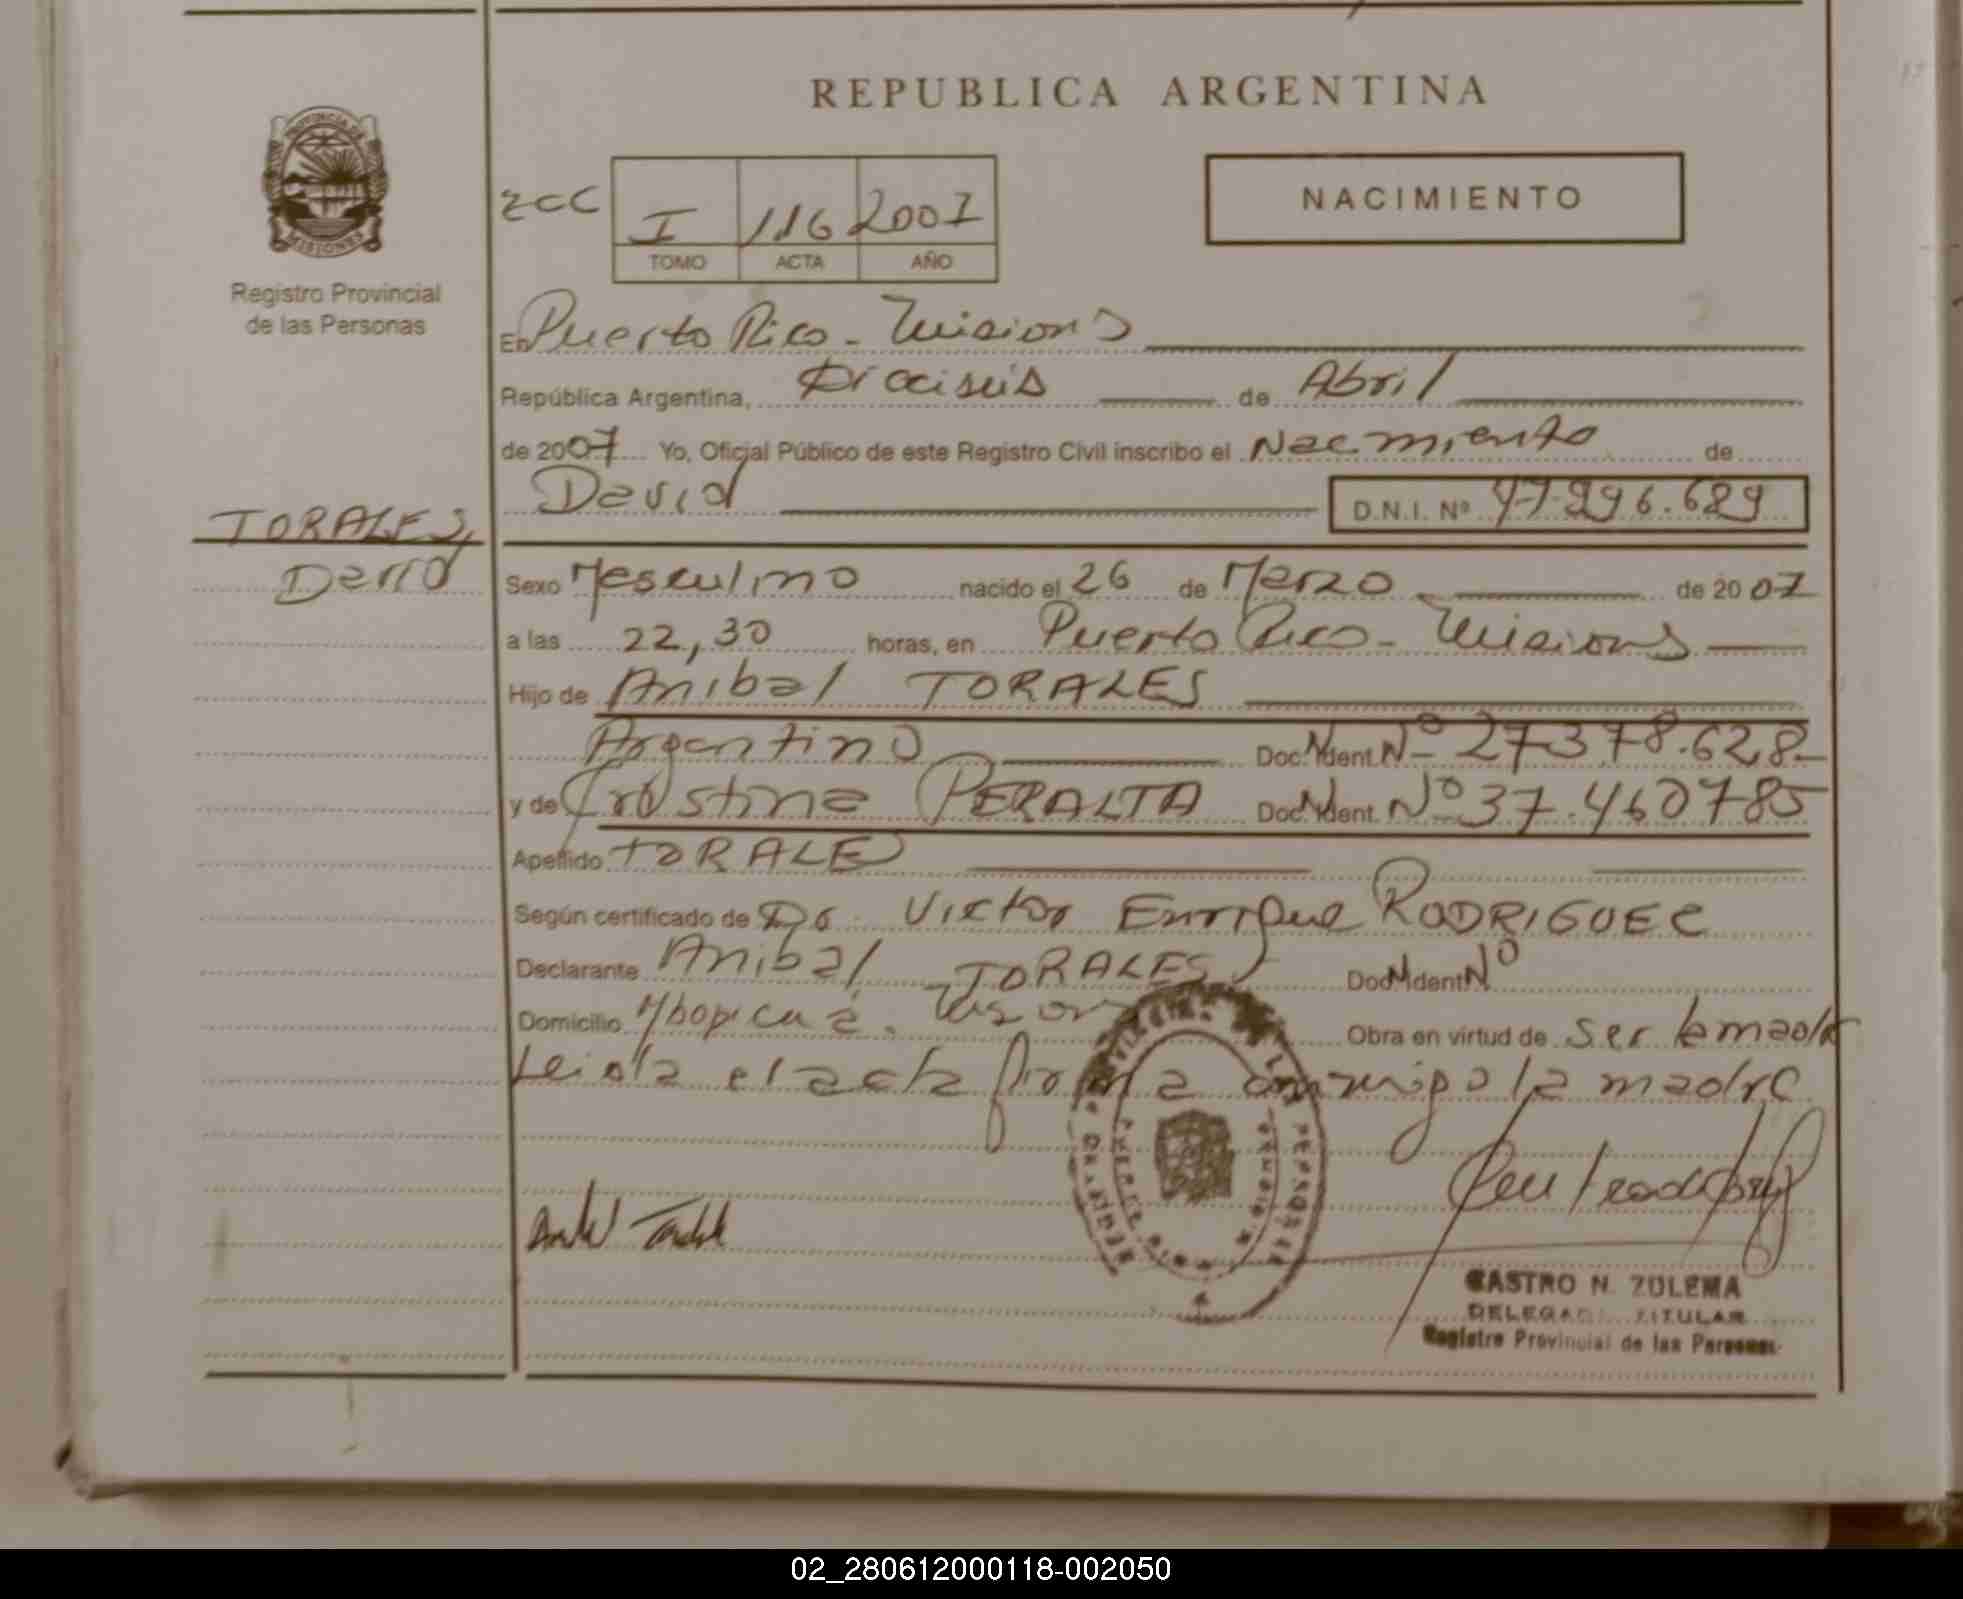 REPUBLICA ARGENTINA
PROVINCIA DE
MISIONES
Registro Provincial
de las Personas
NACIMIENTO
I 116 2007
TOMO ACTA AÑO
En Puerto Rico - Misiones
República Argentina, Dieciseis de Abril
de 2007 Yo, Oficial Público de este Registro Civil inscribo el Nacimiento de
David D.N.I. Nº 47.296.689
TORALES,
David
Sexo Masculino nacido el 26 de Marzo de 2007
a las 22,30 horas, en Puerto Rico - Misiones
Hijo de Anibal TORALES
Argentino Doc. Ident. Nº 27.378.628-
y de Cristina PERALTA Doc. Ident. Nº 37.460785
Apellido TORALES
Según certificado de Dr. Victor Enrique RODRIGUEZ
Declarante Anibal TORALES Doc. Ident. Nº
Domicilio Obra en virtud de ser la madre
Leida el acta firma conmigo la madre
CASTRO N. ZULEMA
DELEGADA TITULAR
Registro Provincial de las Personas
02_280612000118-002050